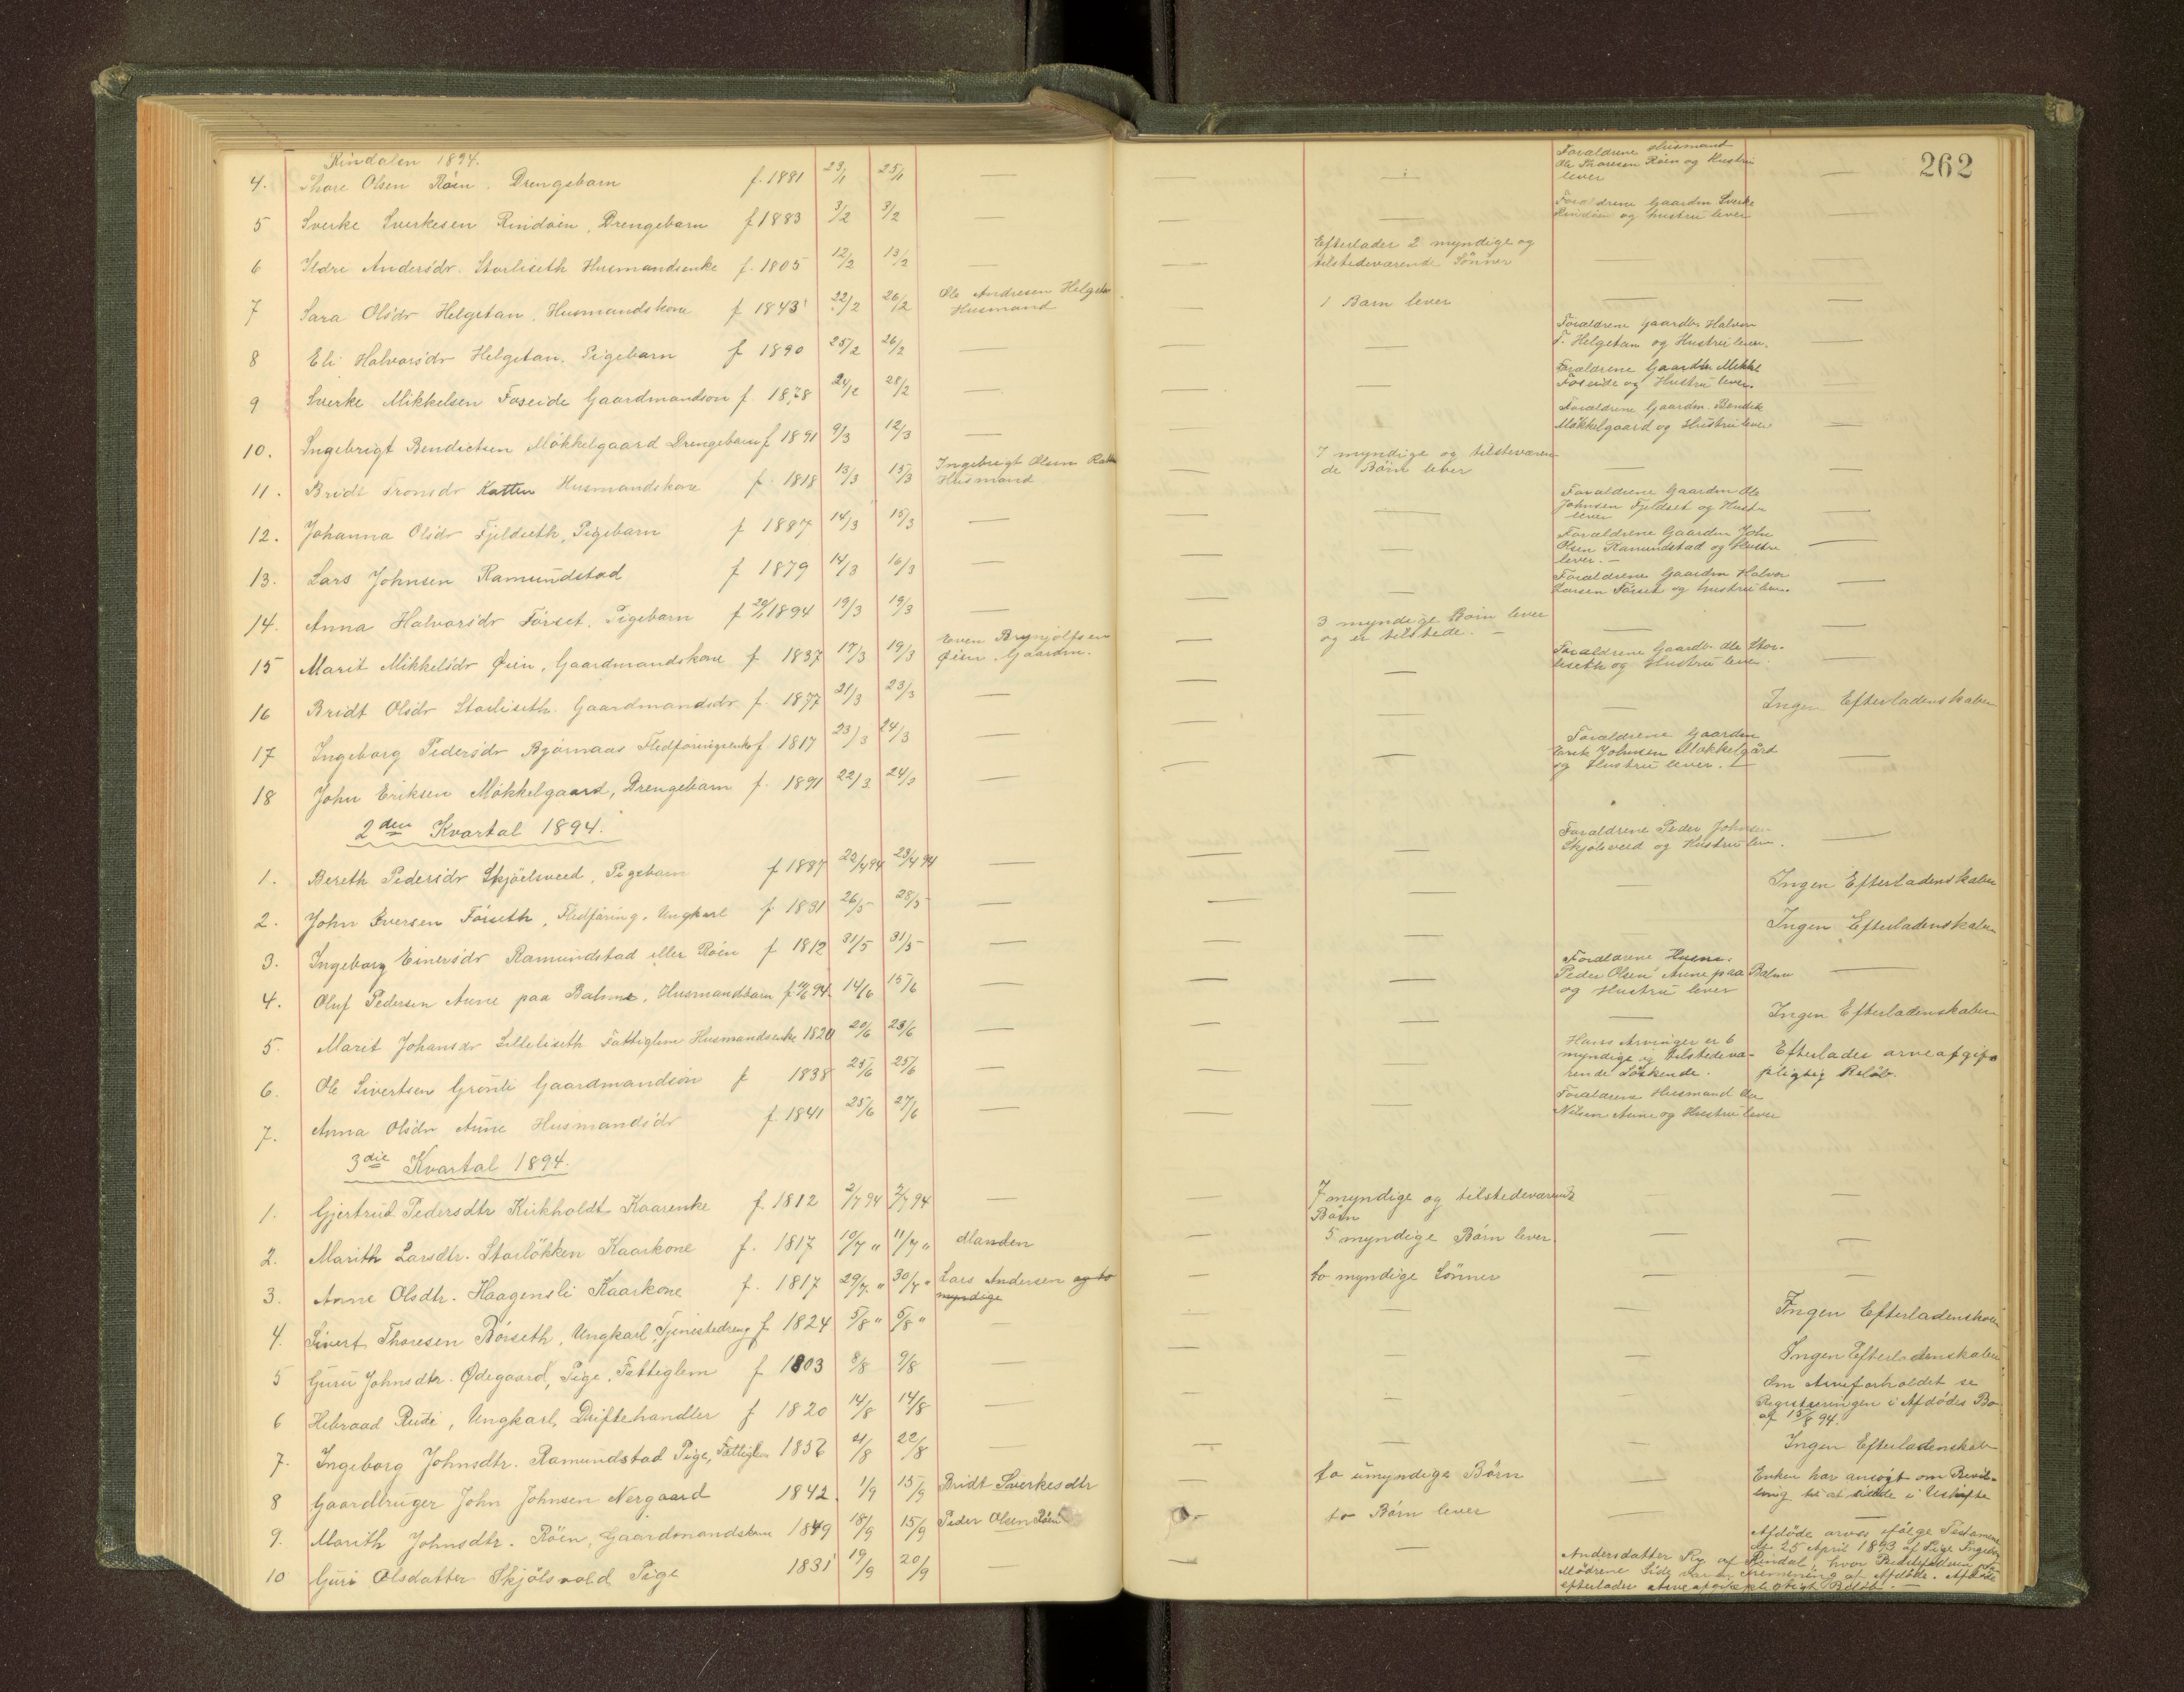 262
Rindalen 1894.
4. Thore Olsen Röen. Drengebarn f. 1881 23/1 25/1 — — — Forældrene Husmand
Ole Thoresen Röen og Hustru
lever —
5 Sverke Sverkesen Rindöien, Drengebarn f 1883 3/2 3/2 — — — Forældrene Gaardm Sverke
Rindöien og Hustru lever —
6 Ildri Andersdr. Storliseth Husmandsenke f. 1805 12/2 13/2 — — Efterlader 2 myndige og
tilstedeværende Sönner
7 Sara Olsdr Helgetan, Husmandskone f 1843 22/2 26/2 Ole Andresen Helgetan
Husmand — 1 Barn lever — —
8 Eli Halvorsdr Helgetan. Pigebarn f 1890 25/2 26/2 — — — Forældrene Gaardbr Halvor
T. Helgetan og Hustru lever. —
9 Sverke Mikkelsen Foseide Gaardmandsön f. 1878 24/2 28/2 — — — Forældrene Gaardbr Mikkel
Foseide og Hustru lever. —
10. Ingebrigt Bendictsen Mökkelgaard Drengebarn f 1891 9/3 12/3 — — Forældrene Gaardm. Bendik
Mökkelgaard og Hustru lever —
11. Bridt Tronsdr Katten Husmandskone f. 1818 13/3 15/3 Ingebrigt Olsen
Husmand — 7 myndige og tilsteværen
de Börn lever — —
12. Johanna Olsdr Fjeldseth, Pigebarn f 1887 14/3 15/3 — — — Forældrene Gaardm Ole
Johnsen Fjeldset og Hustr
lever —
13. Lars Johnsen Ramundstad f 1879 14/3 16/3 — — — Forældrene Gaardm John
Olsen Ramundstad og Hustru
lever. — —
14. Anna Halvorsdr Förset. Pigebarn f 20/1 1894 19/3 19/3 — — — Forældrene Gaardm Halvor
Larsen Förset og Hustru lever —
15 Marit Mikkelsdr Øien, Gaardmandskone f 1837 17/3 19/3 Even Brynjolfsen
Øien. Gaardm. — 3 myndige Börn lever
og er tilstede. — — —
16 Bridt Olsdr Storliseth. Gaardmandsdr f. 1877 21/3 23/3 — — — Forældrene Gaardbr Ole Stor-
liseth og Hustru lever. —
17 Ingeborg Pedersdr Bjørnaas Fledföringsenke f. 1817 23/3 24/3 — — — — Ingen Efterladenskaber
18 John Eriksen Mökkelgaard, Drengebarn f. 1891 22/3 24/3 — — — Forældrene Gaardm
Erik Johnsen Mökkelgård
og Hustru lever. — —
2den Kvartal 1894.
1. Bereth Pedersdr Skjöelsveed, Pigebarn f 1887 22/4 94 23/4 94 — — — Forældrene Peder Johnsen
Skjölsveed og Hustru lever. —
2. John Iversen Förseth, Fledföring. Ungkarl f 1831 26/5 28/5 — — — — Ingen Efterladenskaber
3. Ingeborg Einersdr Ramundstad eller Röen f 1812 31/5 31/5 — — — — Ingen Efterladenskaber
4. Oluf Pedersen Aune paa Balme, Husmandsbarn f 94. 14/6 15/6 — — — Forældrene Husm.
Peder Olsen Aune paa Balme
og Hustru lever —
5. Marit Johansdr Lilleliseth Fattiglem Husmandsenke 1820 20/6 23/6 — — — — Ingen Efterladenskaber
6. Ole Sivertsen Grönli Gaardmandsön f 1838 25/6 25/6 — — — Hans Arvinger er 6
myndige og tilstedevæ-
rende Söskende. Efterlader arveafgifts
pligtig Belöb.
7. Anna Olsdr Aune Husmandsdr f. 1841 25/6 27/6 — — — Forældrene Husmand Ole
Nilsen Aune og Hustru lever
3die Kvartal 1894.
1. Gjertrud Pedersdtr Kirkholdt Kaarenke f. 1812 2/7 94 2/7 94 — — 7 myndige og tilstedeværende
Börn — —
2. Marith Larsdtr. Storlökken Kaarkone f. 1817 10/7 " 11/7 " Manden — 5 myndige Börn lever. — —
3. Anne Olsdtr. Haagensli Kaarkone f. 1817 29/7 " 30/7 " Lars Andersen og to
myndige — to myndige Sönner — —
4. Sivert Thoresen Börseth, Ungkarl, Tjenestedreng f 1824 5/8 " 5/8 " — — — — Ingen Efterladenskaber
5 Guru Johnsdtr. Ødegaard, Pige, Fattiglem f 1803 8/8 9/8 — — — — Ingen Efterladenskaber
6 Hebraad Rudi, Ungkarl, Driftehandler f 1820 14/8 14/8 — — — — Om Arveforholdet se
Registreringen i Afdödes Bo
af 15/8 94.
7. Ingeborg Johnsdtr. Ramundstad Pige, Fattiglem 1856 21/8 22/8 — — — — Ingen Efterladenskab
8 Gaardbruger John Johnsen Nergaard 1842. 1/9 15/9 Bridt Sverkesdtr — to umyndige Börn — Enken har ansögt om Bevil-
ling til at sidde i Uskifte
9. Marith Johnsdtr. Röen, Gaardmandskone 1849 18/9 15/9 Peder Olsen Röen — to Börn lever —
10 Guri Olsdatter Skjölsvold Pige 1831 19/9 20/9 — — — Afdöde arves ifölge Testamente
af 25 April 1893 af Pige Ingeborg
Andersdatter Ry af Rindal, hvor Bedstefaderen paa
Mödrene Side var en af Afdöde. Afdöde
efterlader Arveafgiftspligtigt Belöb. —